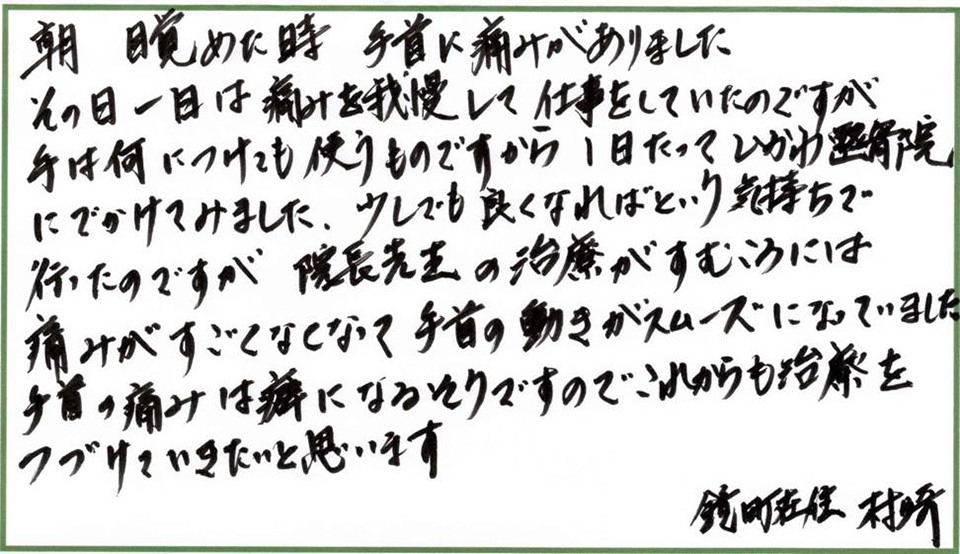 朝 目覚めた時 手首に痛みがありました
その日一日は痛みを我慢して仕事をしていたのですが
手は何につけても使うものですから 1日たってひかわ整骨院
にでかけてみました、少しでも良くなればという気持ちで
行ったのですが 院長先生の治療がすむころには
痛みがすごくなくなって手首の動きがスムーズになっていました
手首の痛みは癖になるそうですのでこれからも治療を
つづけていきたいと思います
鏡町在住 村崎